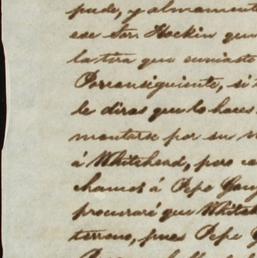 pude, y al momento
ese Sor Hockin que
la tira que enviaste
Por consiguiente, si
le diras que lo haces
montarse por su
á Whitehead, pero
chamos á Pepe
procuraré que White
terreno, pues Pepe G